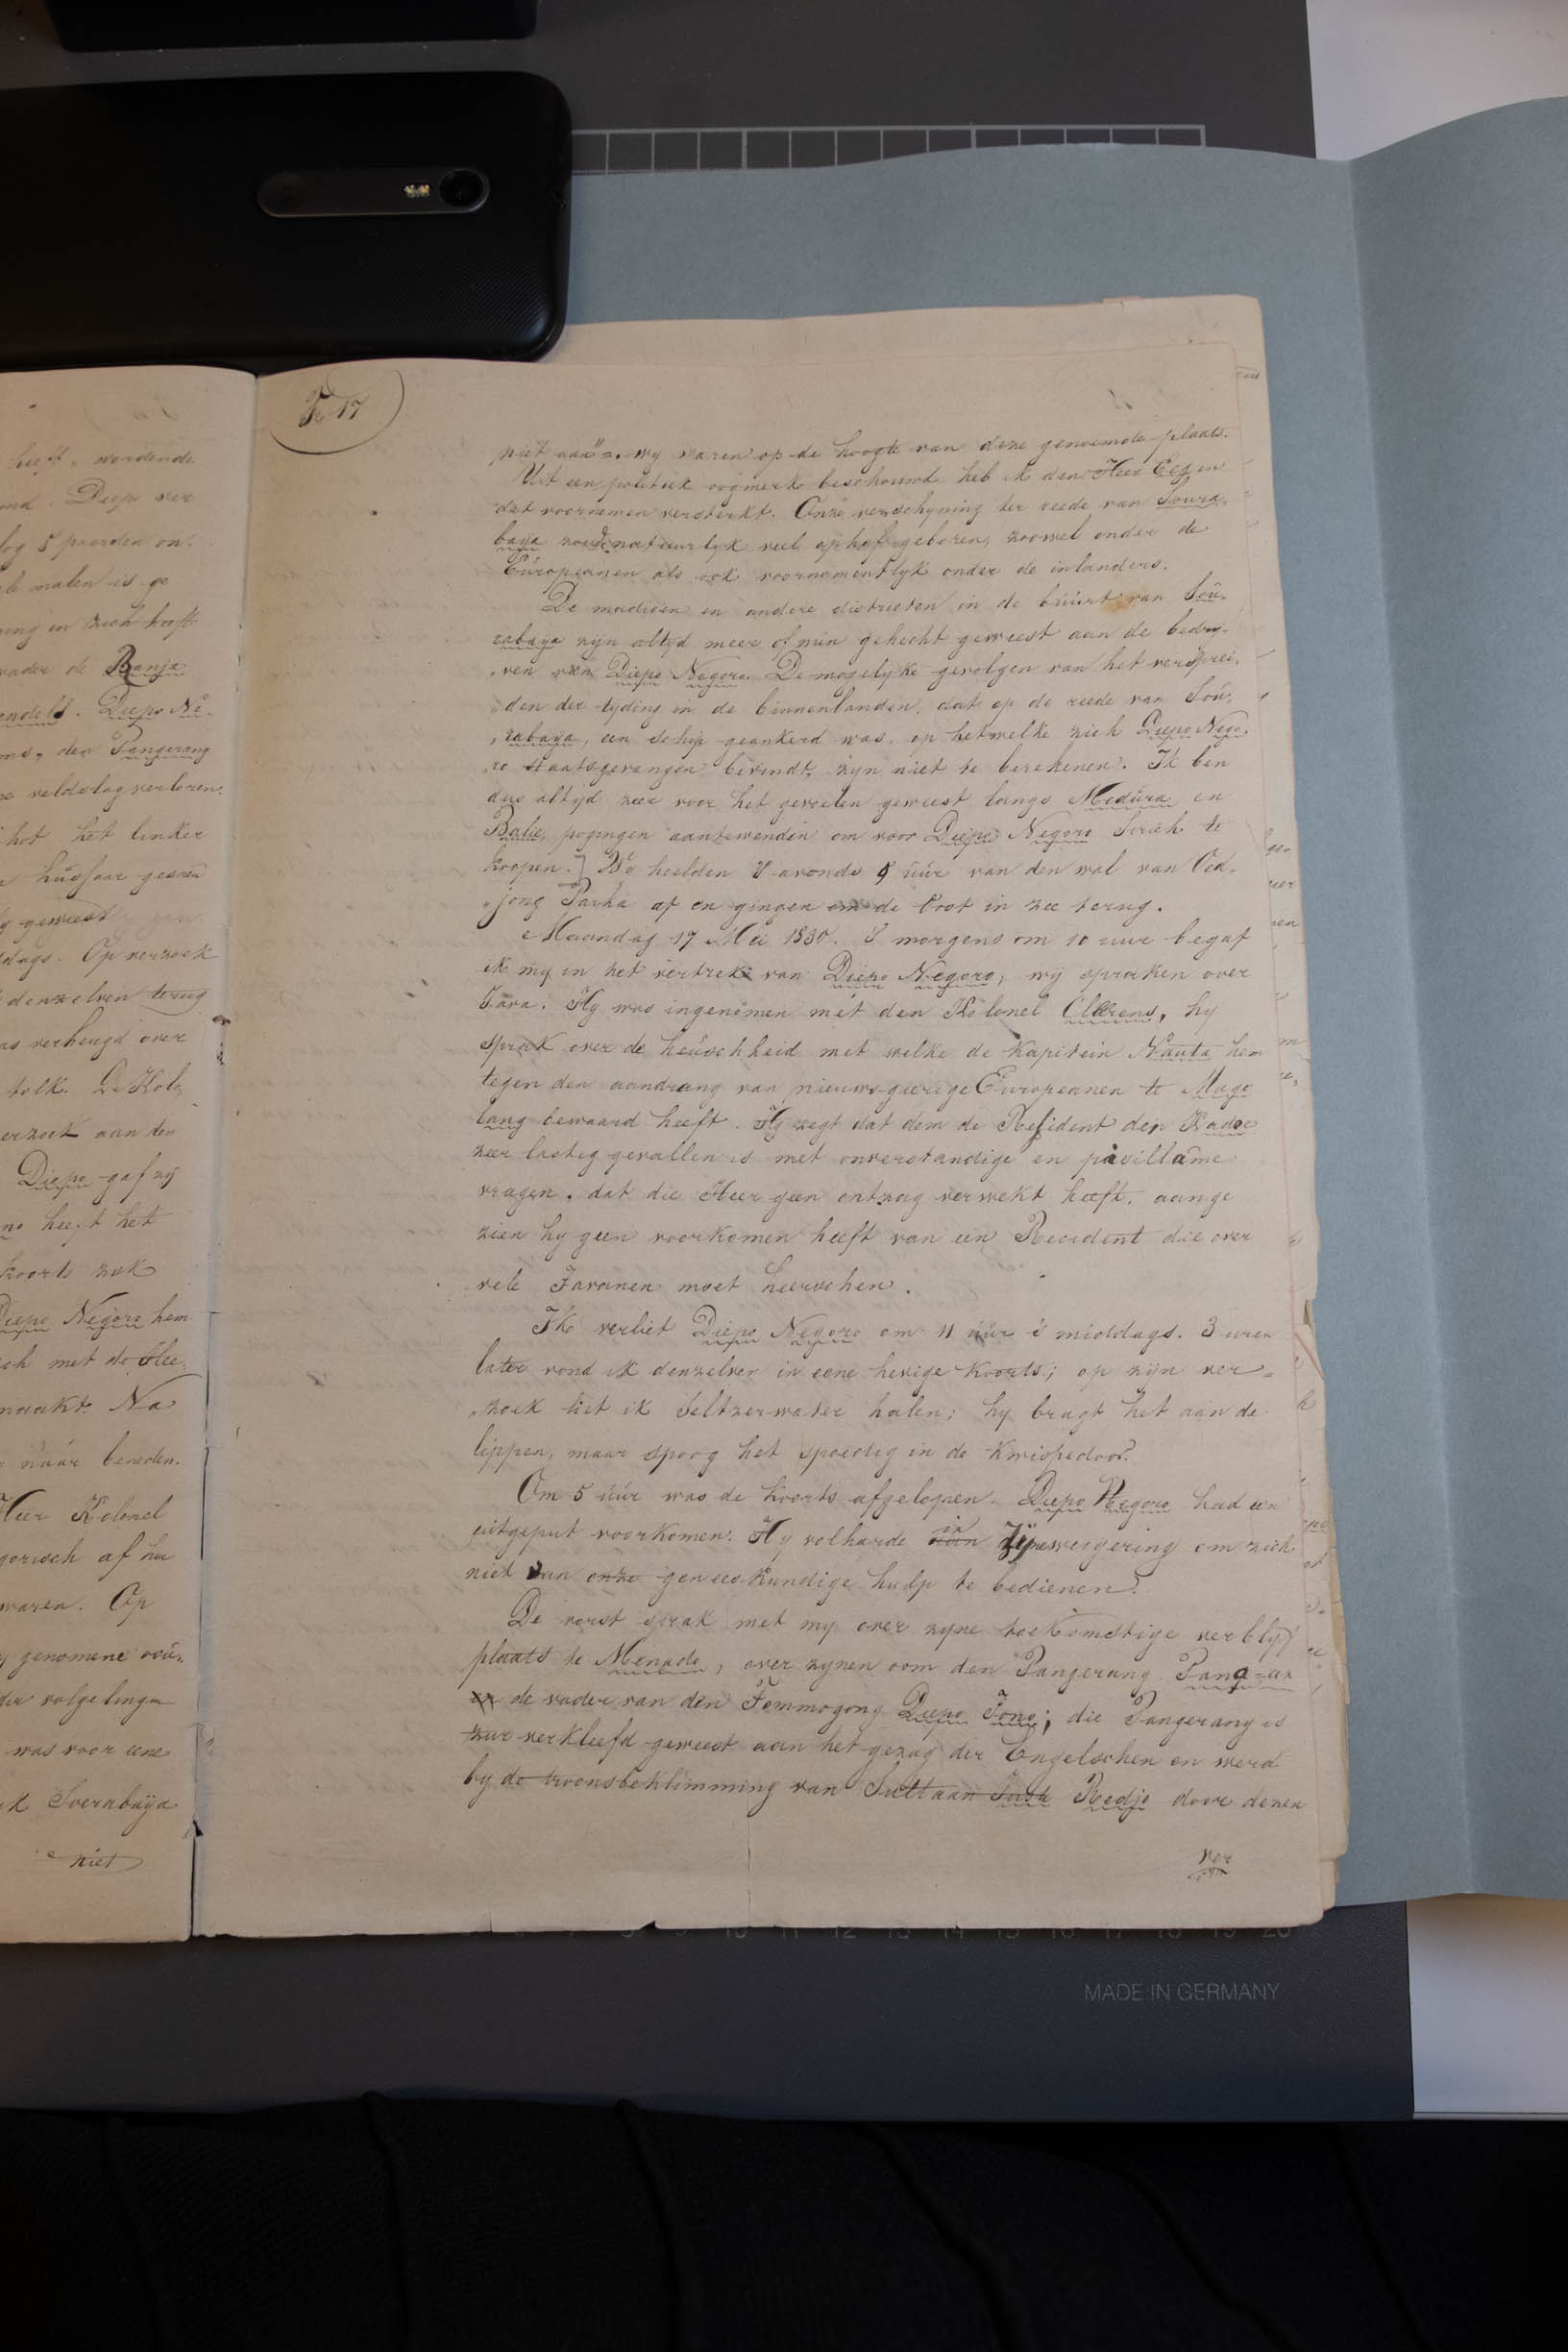 heeft, wordende
Diepo ver
5 paarden on„
malen is ge
en zich heeft
vader de Banja
Diepo Ne„
den Pangerang
veldslag verloren.
schot het linker
hussaar gesneu
geweest
Op verzoek
denzelven terug
verheugd over
tolk. De Kolo„
verzoek aan den
Diepo gaf zij
heeft het
koorts zak
Diepo Negoro hem
met de Hee„
maakt. Na
naar beneden.
Heer Kolonel
gorisch af hu
waren. Op
genomene
der volgelingen
was voor eene
Soerabaÿa
niet
Fo 17
niet aan". wy waren op de hoogte van deze genoemde plaats.
Uit een politiek oogmerk beschouwd heb ik den Heer Eeg in
dat voornemen versterkt. Onze verschyning ter reede van Soura„
baya zoude natuurlyk veel ophef geboren, zoowel onder de
Europeanen als ook voornamentlyk onder de inlanders.
De madioen en andere districten in de buurt van Sou„
rabaya zyn altyd meer of min gehecht geweest aan de bedry„
„ven van Diepo Negoro. De mogelyke gevolgen van het versprei„
„den der tyding in de binnenlanden, dat op de reede van Sou„
„rabaya, een schip geankerd was, op hetwelke zich Diepo Nego„
ro staatsgevangen bevindt, zyn niet te berekenen. Ik ben
dus altijd zeer voor het gevoelen geweest langs Madura en
Balie, pogingen aantewenden om voor Diepo Negoro Sirieh te
koopen.] Wy hielden 's avonds 9 uur van den wal van Oed„
„jong Panka af en gingen de boot in zee terug.
Maandag 17 Mei 1830. 's morgens om 10 uur begaf
ik my in het vertrek van Diepo Negoro; wij spraken over
Java. Hy was ingenomen met den Kolonel Cleerens, hy
sprak over de heuschheid met welke de kapitein Nauta hem
tegen den aandrang van nieuwsgierige Europeanen te Mage
lang bewaard heeft. Hy zegt dat dem de Resident der Kadoe
zeer lastig gevallen is met onverstandige en pusillame
vragen, dat die Heer geen ontzag verwekt heeft, aange
zien hy geen voorkomen heeft van een Resident die over
vele Javanen moet heerschen.
Ik verliet Diepo Negoro om 11 uur 's middags. 3 uren
later vond ik denzelven in eene hevige koorts; op zijn ver=
„zoek liet ik Seltzerwater halen; hy bragt het aan de
lippen, maar spoog het spoedig in de kwispedoor.
Om 5 uur was de koorts afgelopen. Diepo Negoro had een
uitgeput voorkomen. Hy volharde in zijne weigering om zich
niet van onze geneeskundige hulp te bedienen.
De vorst sprak met my over zyne toekomstige verblyf
plaats te Menado, over zynen oom den Pangerang
de vader van den Tommogong Diepo Jono; die Pangerang is
zeer verkleefd geweest aan het gezag der Engelschen en werd
by de troonsbeklimming van Sultaan Redjo door dezen
ver
MADE IN GERMANY